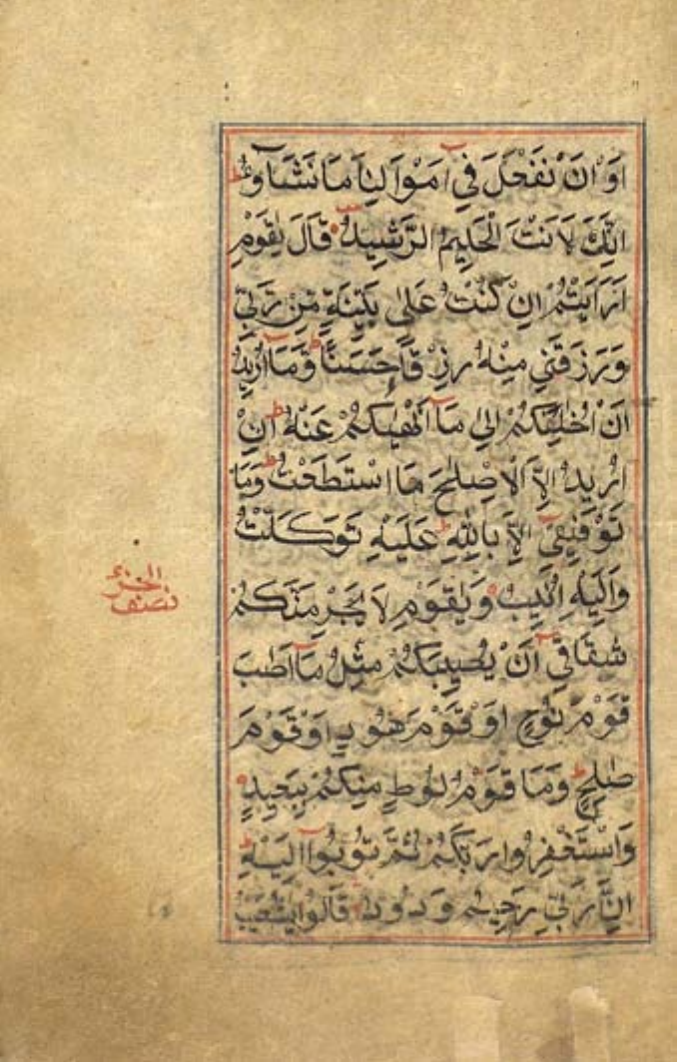 اَوْ اَنْ نَفْعَلَ فِي اَمْوَالِنَا مَا نَشَاؤُ ط
اِنَّكَ لَاَنْتَ الْحَلِيمُ الرَّشِيدُ قَالَ يٰقَوْمِ
اَرَاَيْتُمْ اِنْ كُنْتُ عَلٰى بَيِّنَةٍ مِّنْ رَّبِّي
وَرَزَقَنِي مِنْهُ رِزْقًا حَسَنًا ط وَّمَا اُرِيدُ
اَنْ اُخَالِفَكُمْ اِلٰى مَا اَنْهٰيكُمْ عَنْهُ ط اِنْ
اُرِيدُ اِلَّا الْاِصْلٰحَ مَا اسْتَطَعْتُ ط وَمَا
تَوْفِيقِي اِلَّا بِاللّٰهِ ط عَلَيْهِ تَوَكَّلْتُ
وَاِلَيْهِ اُنِيبُ وَيٰقَوْمِ لَا يَجْرِمَنَّكُمْ
شِقَاقِي اَنْ يُصِيبَكُمْ مِثْلُ مَا اَصَابَ
قَوْمَ نُوحٍ اَوْ قَوْمَ هُودٍ اَوْ قَوْمَ
صٰلِحٍ ط وَمَا قَوْمُ لُوطٍ مِنْكُمْ بِبَعِيدٍ
وَاسْتَغْفِرُوا رَبَّكُمْ ثُمَّ تُوبُوا اِلَيْهِ ط
اِنَّ رَبِّي رَحِيمٌ وَدُودٌ قَالُوا يٰشُعَيْبُ
نصف الجزء